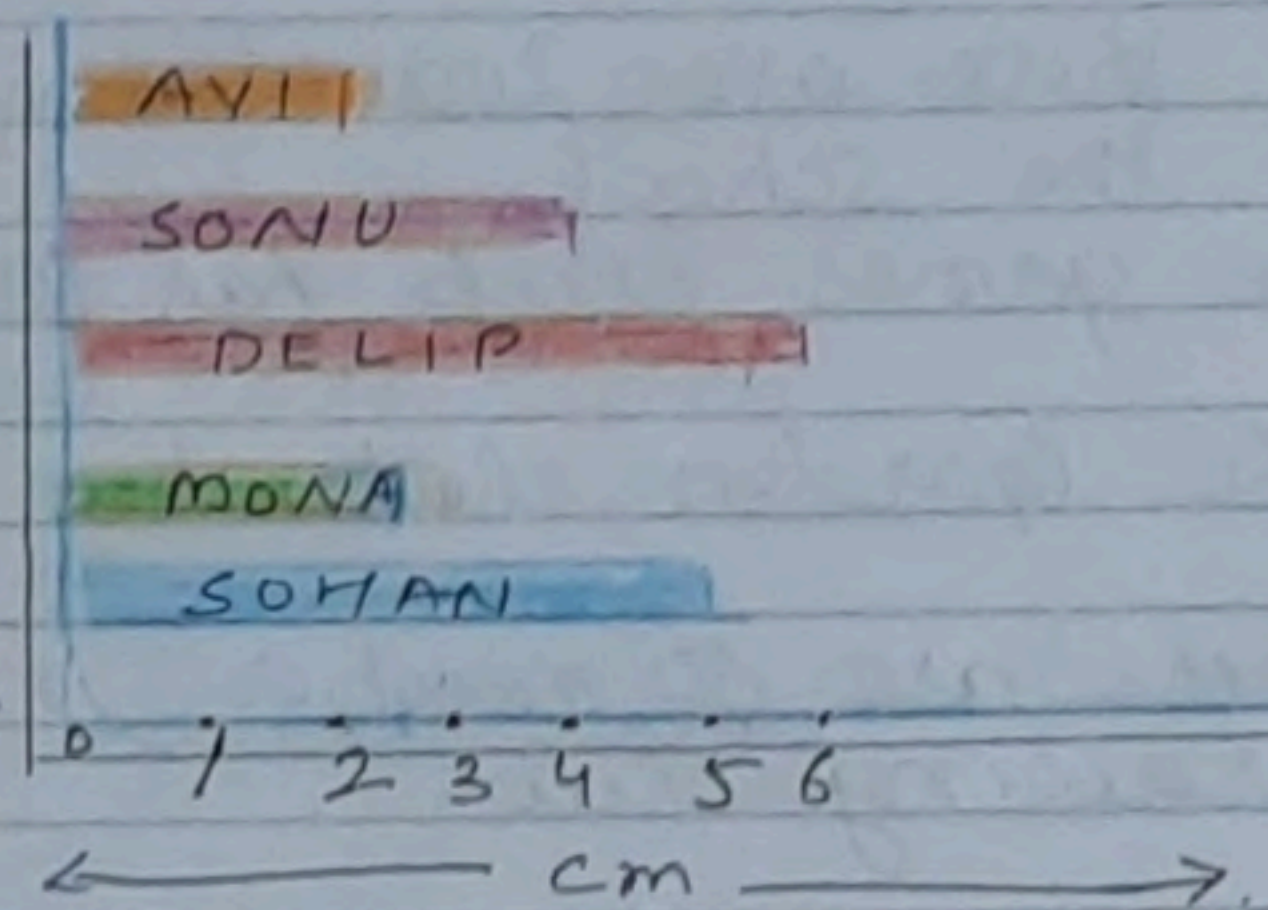 AVI
SONU
DELIP
MONA
SOHAN
0 1 2 3 4 5 6
cm